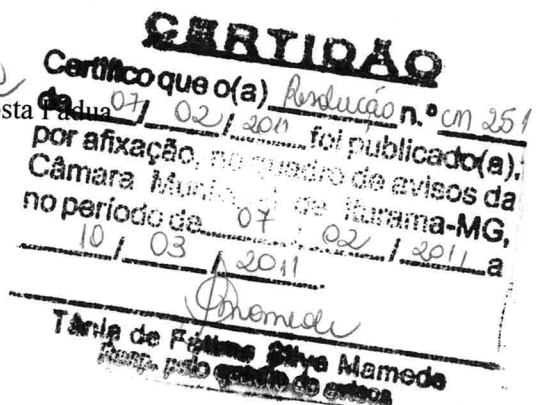 CERTIDÃO
Certifico que o(a) Resolução n.º cm 251
de 07/ 02 / 2011 foi publicado(a),
osta Padua
por afixação, no quadro de avisos da
Câmara Municipal de Iturama-MG,
no período de 07 / 02 / 2011 a
10 / 03 / 2011
Tânia de Fátima Silva Mamede
Resp. pelo quadro de avisos